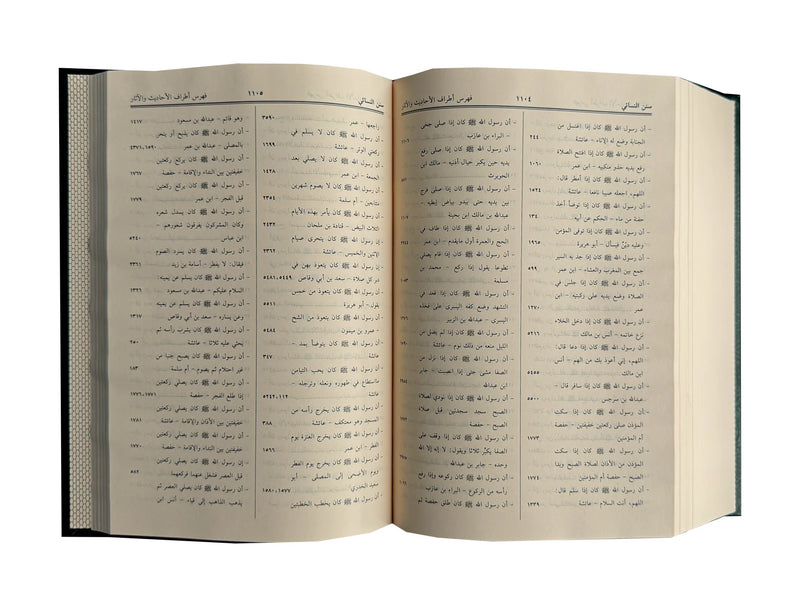 سنن النسائي
١١٠٤
فهرس أطراف الأحاديث والآثار
- أن رسول الله ﷺ كان إذا اغتسل من
الجنابة وضع له الإناء - عائشة ٢٤٤
- أن رسول الله ﷺ كان إذا افتتح الصلاة
رفع يديه حذو منكبيه - ابن عمر ١٠٦٠
- أن رسول الله ﷺ كان إذا أمطر قال:
اللهم، اجعله صيبا نافعا - عائشة ١٥٢٤
- أن رسول الله ﷺ كان إذا توضأ أخذ
حفنة من ماء - الحكم عن أبيه ١٣٤
- أن رسول الله ﷺ كان إذا توفى المؤمن
وعليه دَيْنٌ فيسأل - أبو هريرة ١٩٦٥
- أن رسول الله ﷺ كان إذا جد به السير
جمع بين المغرب والعشاء - ابن عمر ٥٩٩
- أن رسول الله ﷺ كان إذا جلس في
الصلاة وضع يديه على ركبتيه - ابن
عمر ١٢٧٠
- أن رسول الله ﷺ كان إذا دخل الخلاء
نزع خاتمه - أنس بن مالك ٥٢١٦
- أن رسول الله ﷺ كان إذا دعا قال:
اللهم، إني أعوذ بك من الهم - أنس
ابن مالك ٥٤٥٥
- أن رسول الله ﷺ كان إذا سافر قال -
عبدالله بن سرجس ٥٥٠٠
- أن رسول الله ﷺ كان إذا سكت
المؤذن صلى ركعتين خفيفتين - حفصة
أم المؤمنين ١٧٧٣
- أن رسول الله ﷺ كان إذا سكت
المؤذن من الأذان لصلاة الصبح وبدا
الصبح - حفصة أم المؤمنين ١٧٧٤
- أن رسول الله ﷺ كان إذا سلم قال:
اللهم، أنت السلام - عائشة ١٣٣٩
- أن رسول الله ﷺ كان إذا صلى جخى
- البراء بن عازب
- أن رسول الله ﷺ كان إذا صلى رفع
يديه حين يكبر حيال أذنيه - مالك ابن
الحويرث
- أن رسول الله ﷺ كان إذا صلى فرج
بين يديه حتى يبدو بياض إبطيه -
عبدالله بن مالك ابن بحينة
- أن رسول الله ﷺ كان إذا طاف في
الحج والعمرة أول مايقدم - ابن عمر
- أن رسول الله ﷺ كان إذا قام يصلي
تطوعا يقول إذا ركع - محمد بن
مسلمة
- أن رسول الله ﷺ كان إذا قعد في
التشهد وضع كفه اليسرى على فخذه
اليسرى - عبدالله بن الزبير
- أن رسول الله ﷺ كان إذا لم يصل من
الليل منعه من ذلك نوم - عائشة
- أن رسول الله ﷺ كان إذا نزل من
الصفا مشى حتى إذا انصبت - جابر
ابن عبدالله
- أن رسول الله ﷺ كان إذا نودي لصلاة
الصبح سجد سجدتين قبل صلاة
الصبح - حفصة
- أن رسول الله ﷺ كان إذا وقف على
الصفا يكبّر ثلاثا ويقول: لا إله إلا الله
وحده - جابر بن عبدالله
- أن رسول الله ﷺ كان ركوعه وإذا رفع
رأسه من الركوع - البراء بن عازب
- أن رسول الله ﷺ كان طلق حفصة ثم
سنن النسائي
١١٠٥
فهرس أطراف الأحاديث والآثار
راجعها - عمر ٣٥٩٠
- أن رسول الله ﷺ كان لا يسلم في
ركعتي الوتر - عائشة ١٦٩٩
- أن رسول الله ﷺ كان لا يصلي بعد
الجمعة - ابن عمر ١٤٢٨
- أن رسول الله ﷺ كان لا يصوم شهرين
متتابعين - أم سلمة ٢٣٥٤
- أن رسول الله ﷺ كان يأمر بهذه الأيام
الثلاث البيض - قتادة بن ملحان ٢٤٣٢
- أن رسول الله ﷺ كان يتحرى صيام
الإثنين والخميس - عائشة ٢٣٦٢
- أن رسول الله ﷺ كان يتعوذ بهن في
دبر كل صلاة - سعد بن أبي وقاص ٥٤٤٩، ٥٤٨١
- أن رسول الله ﷺ كان يتعوذ من خمس
يقول - أبو هريرة ٥٥١١
- أن رسول الله ﷺ كان يتعوذ من الشح
- عمرو بن ميمون ٥٤٨٤
- أن رسول الله ﷺ كان يتوضأ بمد -
عائشة ٣٤٧
- أن رسول الله ﷺ كان يحب التيامن
مااستطاع في طهوره ونعله وترجله -
عائشة ١١٢، ٥٢٤٢
- أن رسول الله ﷺ كان يخرج رأسه من
المسجد وهو معتكف - عائشة ٣٨٨
- أن رسول الله ﷺ كان يخرج العنزة يوم
الفطر - ابن عمر ١٥٦٦
- أن رسول الله ﷺ كان يخرج يوم الفطر
ويوم الأضحى إلى المصلى - أبو
سعيد الخدري ١٥٧٧، ١٥٨٠
- أن رسول الله ﷺ كان يخطب الخطبتين
وهو قائم - عبدالله بن مسعود ١٤١٧
- أن رسول الله ﷺ كان يذبح أو ينحر
بالمصلى - عبدالله بن عمر ١٥٩٠، ٤٣٧١
- أن رسول الله ﷺ كان يركع ركعتين
خفيفتين بين النداء والإقامة - حفصة ١٧٦٧
- أن رسول الله ﷺ كان يركع ركعتين
قبل الفجر - ابن عمر ١٧٧٩
- أن رسول الله ﷺ كان يسدل شعره
وكان المشركون يفرقون شعورهم -
ابن عباس ٥٢٤٠
- أن رسول الله ﷺ كان يسرد الصوم
فيقال: لا يفطر - أسامة بن زيد ٢٣٦١
- أن رسول الله ﷺ كان يسلم عن يمينه:
السلام عليكم - عبدالله بن مسعود
- أن رسول الله ﷺ كان يسلم عن يمينه
وعن يساره - سعد بن أبي وقاص ١٣١٧
- أن رسول الله ﷺ كان يشرب رأسه ثم
يحثي عليه ثلاثا - عائشة ٢٥٠
- أن رسول الله ﷺ كان يصبح جنبا من
غير احتلام ثم يصوم - أم سلمة ١٨٣
- أن رسول الله ﷺ كان يصلي ركعتين
إذا طلع الفجر - حفصة ١٧٧١، ١٧٧٦
- أن رسول الله ﷺ كان يصلي ركعتين
خفيفتين بين الأذان والإقامة - عائشة ١٧٨١
- أن رسول الله ﷺ كان يصلي ركعتين
خفيفتين بين النداء والإقامة - حفصة ١٧٧٠
- إن رسول الله ﷺ كان يصلي ركعتين
قبل العصر فشغل عنهما فركعهما ٥٨٢
- أن رسول الله ﷺ كان يصلي العصر ثم
يذهب الذاهب إلى قباء - أنس ابن